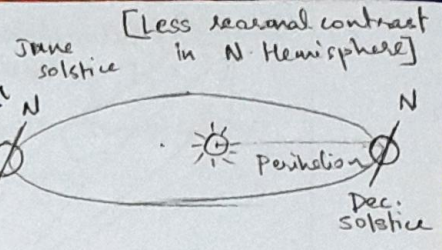 [Less seasonal contrast
in N. Hemisphere]
June
solstice
N
N
Perihelion
Dec.
solstice